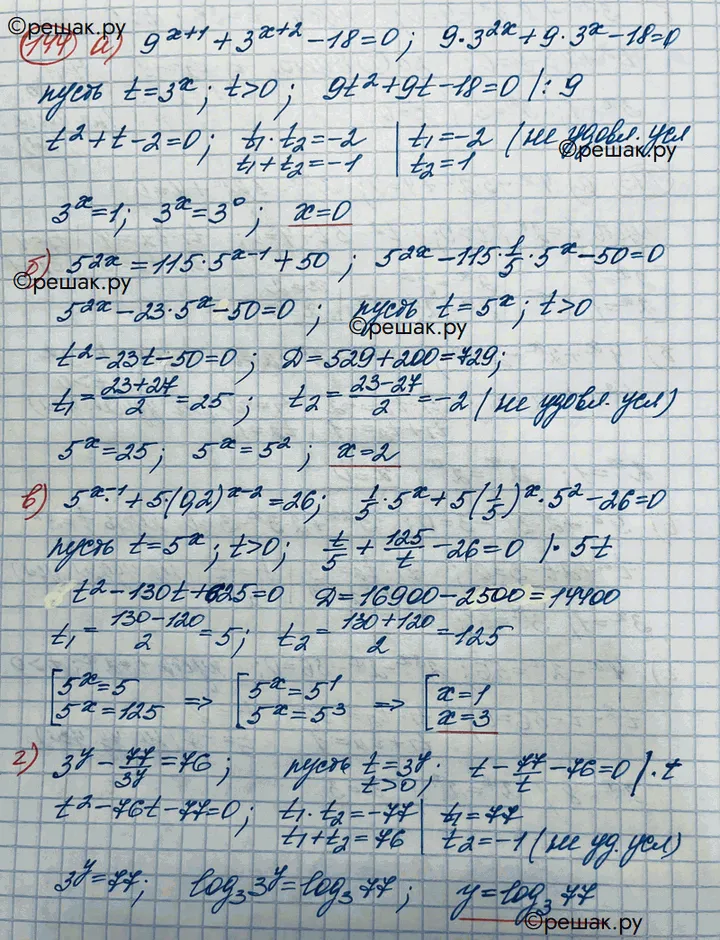 ©решак.ру
144 а) 9^(x+1) + 3^(x+2) − 18 = 0; 9·3^(2x) + 9·3^x − 18 = 0
пусть t = 3^x; t > 0; 9t² + 9t − 18 = 0 |: 9
t² + t − 2 = 0; t₁·t₂ = −2 | t₁ = −2 (не удовл. усл
t₁ + t₂ = −1 | t₂ = 1
©решак.ру
3^x = 1; 3^x = 3^0; x = 0
б) 5^(2x) = 115·5^(x−1) + 50; 5^(2x) − 115·1/5·5^x − 50 = 0
©решак.ру
5^(2x) − 23·5^x − 50 = 0; пусть t = 5^x; t > 0
©решак.ру
t² − 23t − 50 = 0; D = 529 + 200 = 729;
t₁ = (23+27)/2 = 25; t₂ = (23−27)/2 = −2 (не удовл. усл)
5^x = 25; 5^x = 5²; x = 2
в) 5^(x−1) + 5·(0,2)^(x−2) = 26; 1/5·5^x + 5(1/5)^x·5² − 26 = 0
пусть t = 5^x; t > 0; t/5 + 125/t − 26 = 0 |· 5t
t² − 130t + 625 = 0 D = 16900 − 2500 = 14400
t₁ = (130−120)/2 = 5; t₂ = (130+120)/2 = 125
[5^x = 5 => [5^x = 5^1 => [x = 1
5^x = 125 5^x = 5^3 x = 3
г) 3^y − 77/3^y = 76; пусть t = 3^y; t − 77/t − 76 = 0 |· t
t > 0
t² − 76t − 77 = 0; t₁·t₂ = −77 | t₁ = 77
t₁ + t₂ = 76 | t₂ = −1 (не уд. усл)
3^y = 77; log₃ 3^y = log₃ 77; y = log₃ 77
©решак.ру